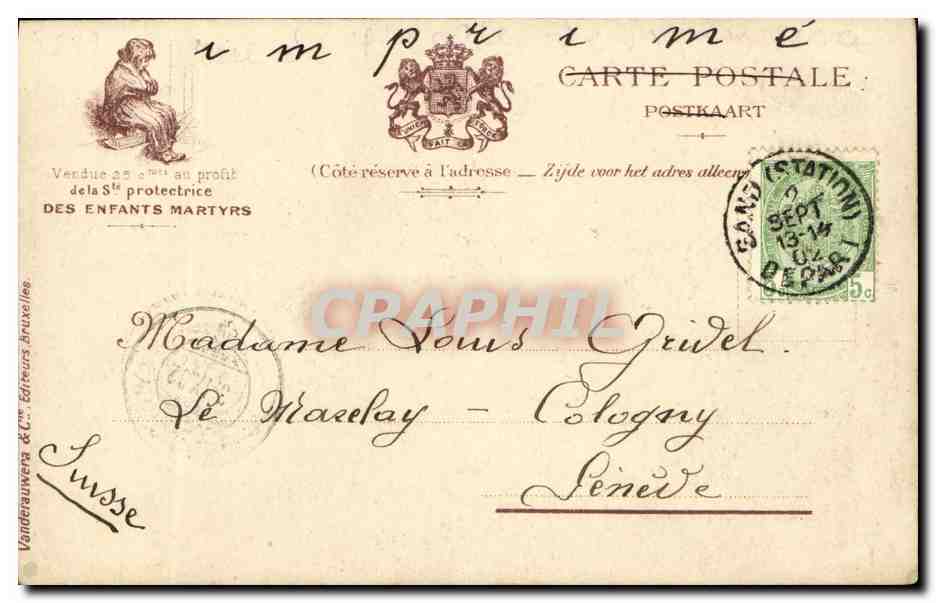 imprimé
CARTE POSTALE
POSTKAART
L'UNION FAIT LA FORCE
Vendue 25 cmes au profit
de la Sté protectrice
DES ENFANTS MARTYRS
(Côté réservé à l'adresse — Zijde voor het adres alleen
GAND (STATION)
2
SEPT
13-14
02
DEPART
5c.
CRAPHIL
Madame Louis Gridel.
Le Maselay — Cologny
Genève
Suisse
Vanderauwera & Cie, Editeurs Bruxelles.